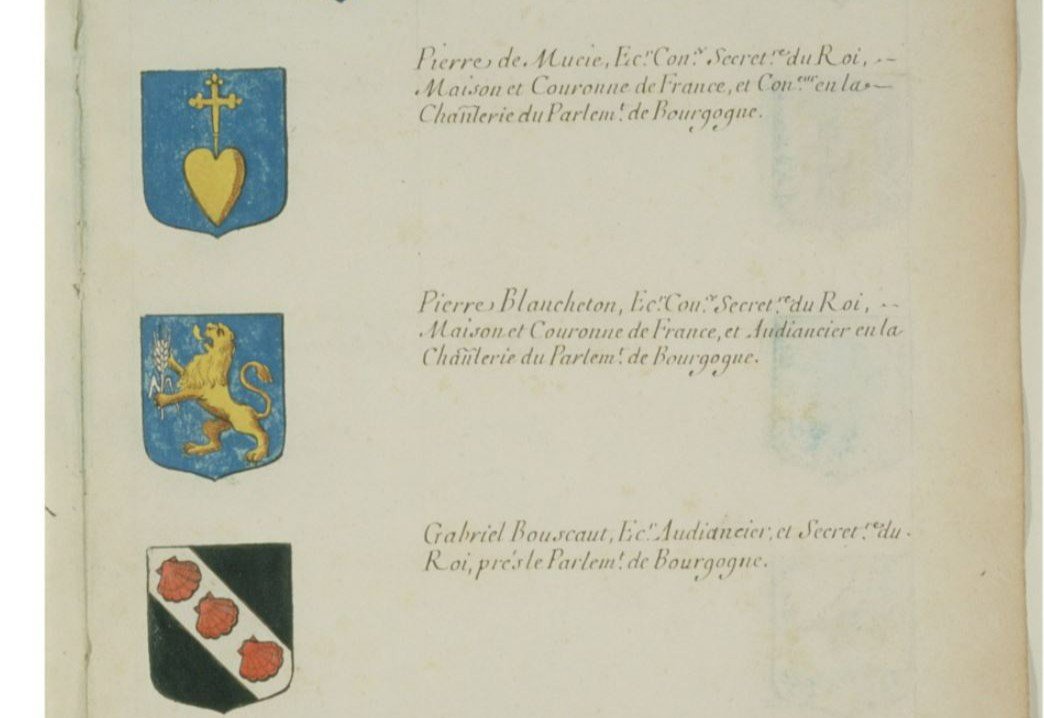 Pierre de Mucie, Ecr. Conr. Secretre. du Roi,
Maison et Couronne de France, et Coneur. en la
Chañlerie du Parlemt. de Bourgogne.
Pierre Blancheton, Ecr. Conr. Secretre. du Roi,
Maison et Couronne de France, et Audiancier en la
Chañlerie du Parlemt. de Bourgogne.
Gabriel Bouscaut, Ecr. Audiancier, et Secretre. du
Roi, prés le Parlemt. de Bourgogne.